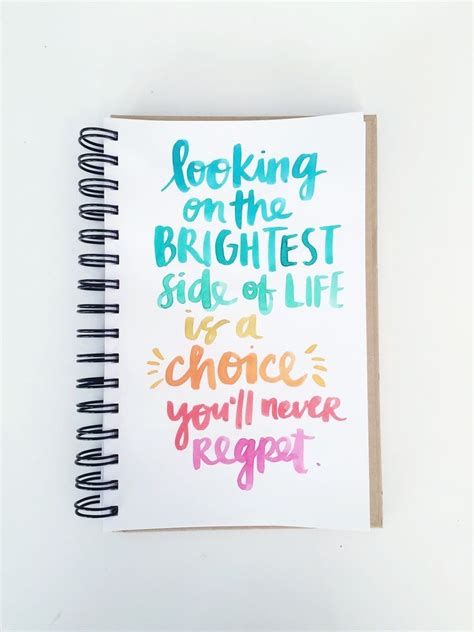 looking
on the
BRIGHTEST
side of LIFE
is a
choice
you'll never
regret.